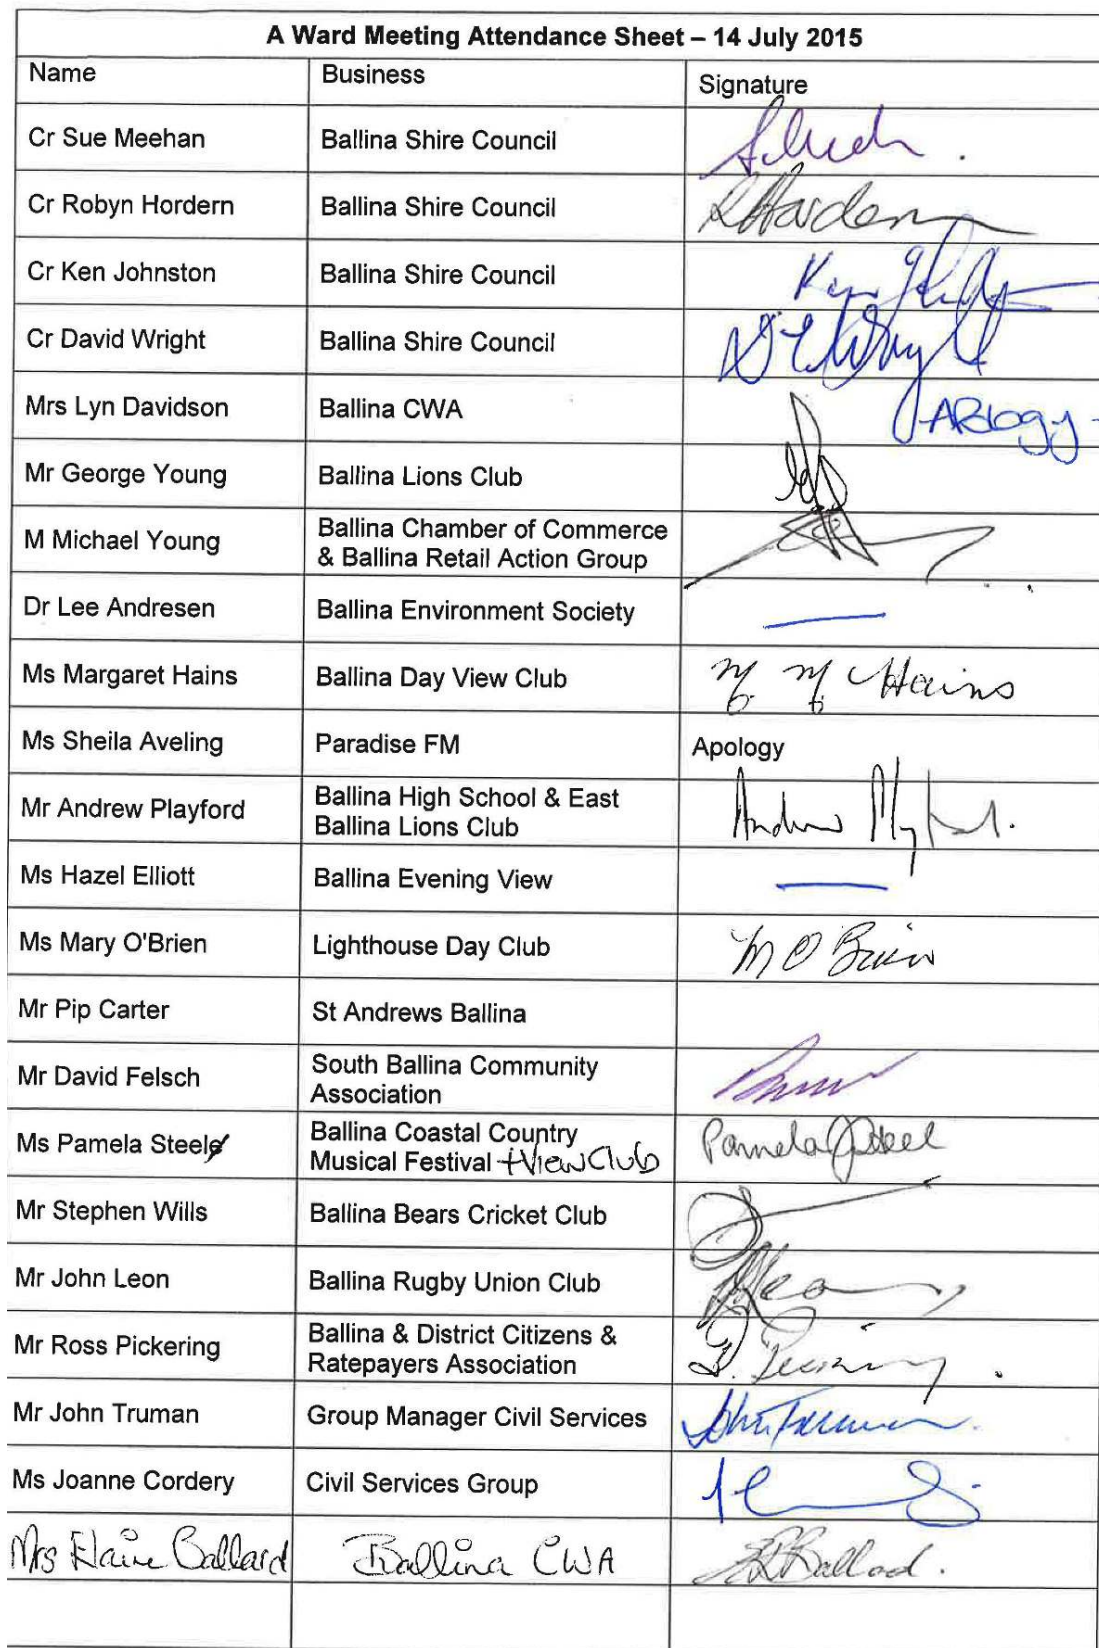 A Ward Meeting Attendance Sheet – 14 July 2015
Name Business Signature
Cr Sue Meehan Ballina Shire Council
Cr Robyn Hordern Ballina Shire Council
Cr Ken Johnston Ballina Shire Council Ken
Cr David Wright Ballina Shire Council
Mrs Lyn Davidson Ballina CWA Apology
Mr George Young Ballina Lions Club
M Michael Young Ballina Chamber of Commerce
& Ballina Retail Action Group
Dr Lee Andresen Ballina Environment Society
Ms Margaret Hains Ballina Day View Club Hains
Ms Sheila Aveling Paradise FM Apology
Mr Andrew Playford Ballina High School & East
Ballina Lions Club Andrew
Ms Hazel Elliott Ballina Evening View
Ms Mary O'Brien Lighthouse Day Club M O Brien
Mr Pip Carter St Andrews Ballina
Mr David Felsch South Ballina Community
Association
Ms Pamela Steele Ballina Coastal Country
Musical Festival + View Club Pamela J Steel
Mr Stephen Wills Ballina Bears Cricket Club
Mr John Leon Ballina Rugby Union Club
Mr Ross Pickering Ballina & District Citizens &
Ratepayers Association
Mr John Truman Group Manager Civil Services John Truman
Ms Joanne Cordery Civil Services Group
Mrs Elaine Ballard Ballina CWA Ballard.